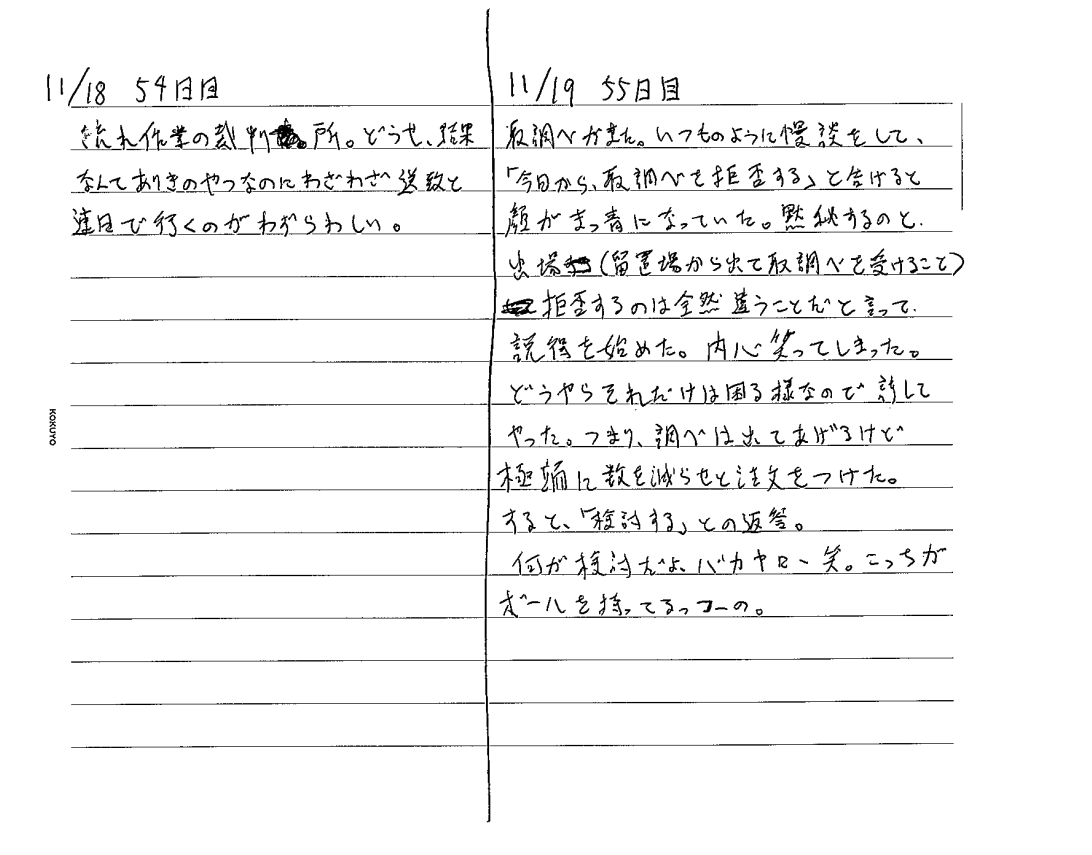 11/18 54日目
流れ作業の裁判所。どうせ、結果
なんてありきのやつなのにわざわざ送致と
連日で行くのがわずらわしい。
KOKUYO
11/19 55日目
取調べがまた。いつものように慢談をして、
「今日から、取調べを拒否する」と告げると
顔がまっ青になっていた。黙秘するのと、
出場(留置場から出て取調べを受けること)
拒否するのは全然違うことだと言って、
説得を始めた。内心笑ってしまった。
どうやらそれだけは困る様なので許して
やった。つまり、調べは出てあげるけど
極端に数を減らせと注文をつけた。
すると、「検討する」との返答。
何が検討だよ、バカヤロー笑。こっちが
ボールを持ってるっつーの。